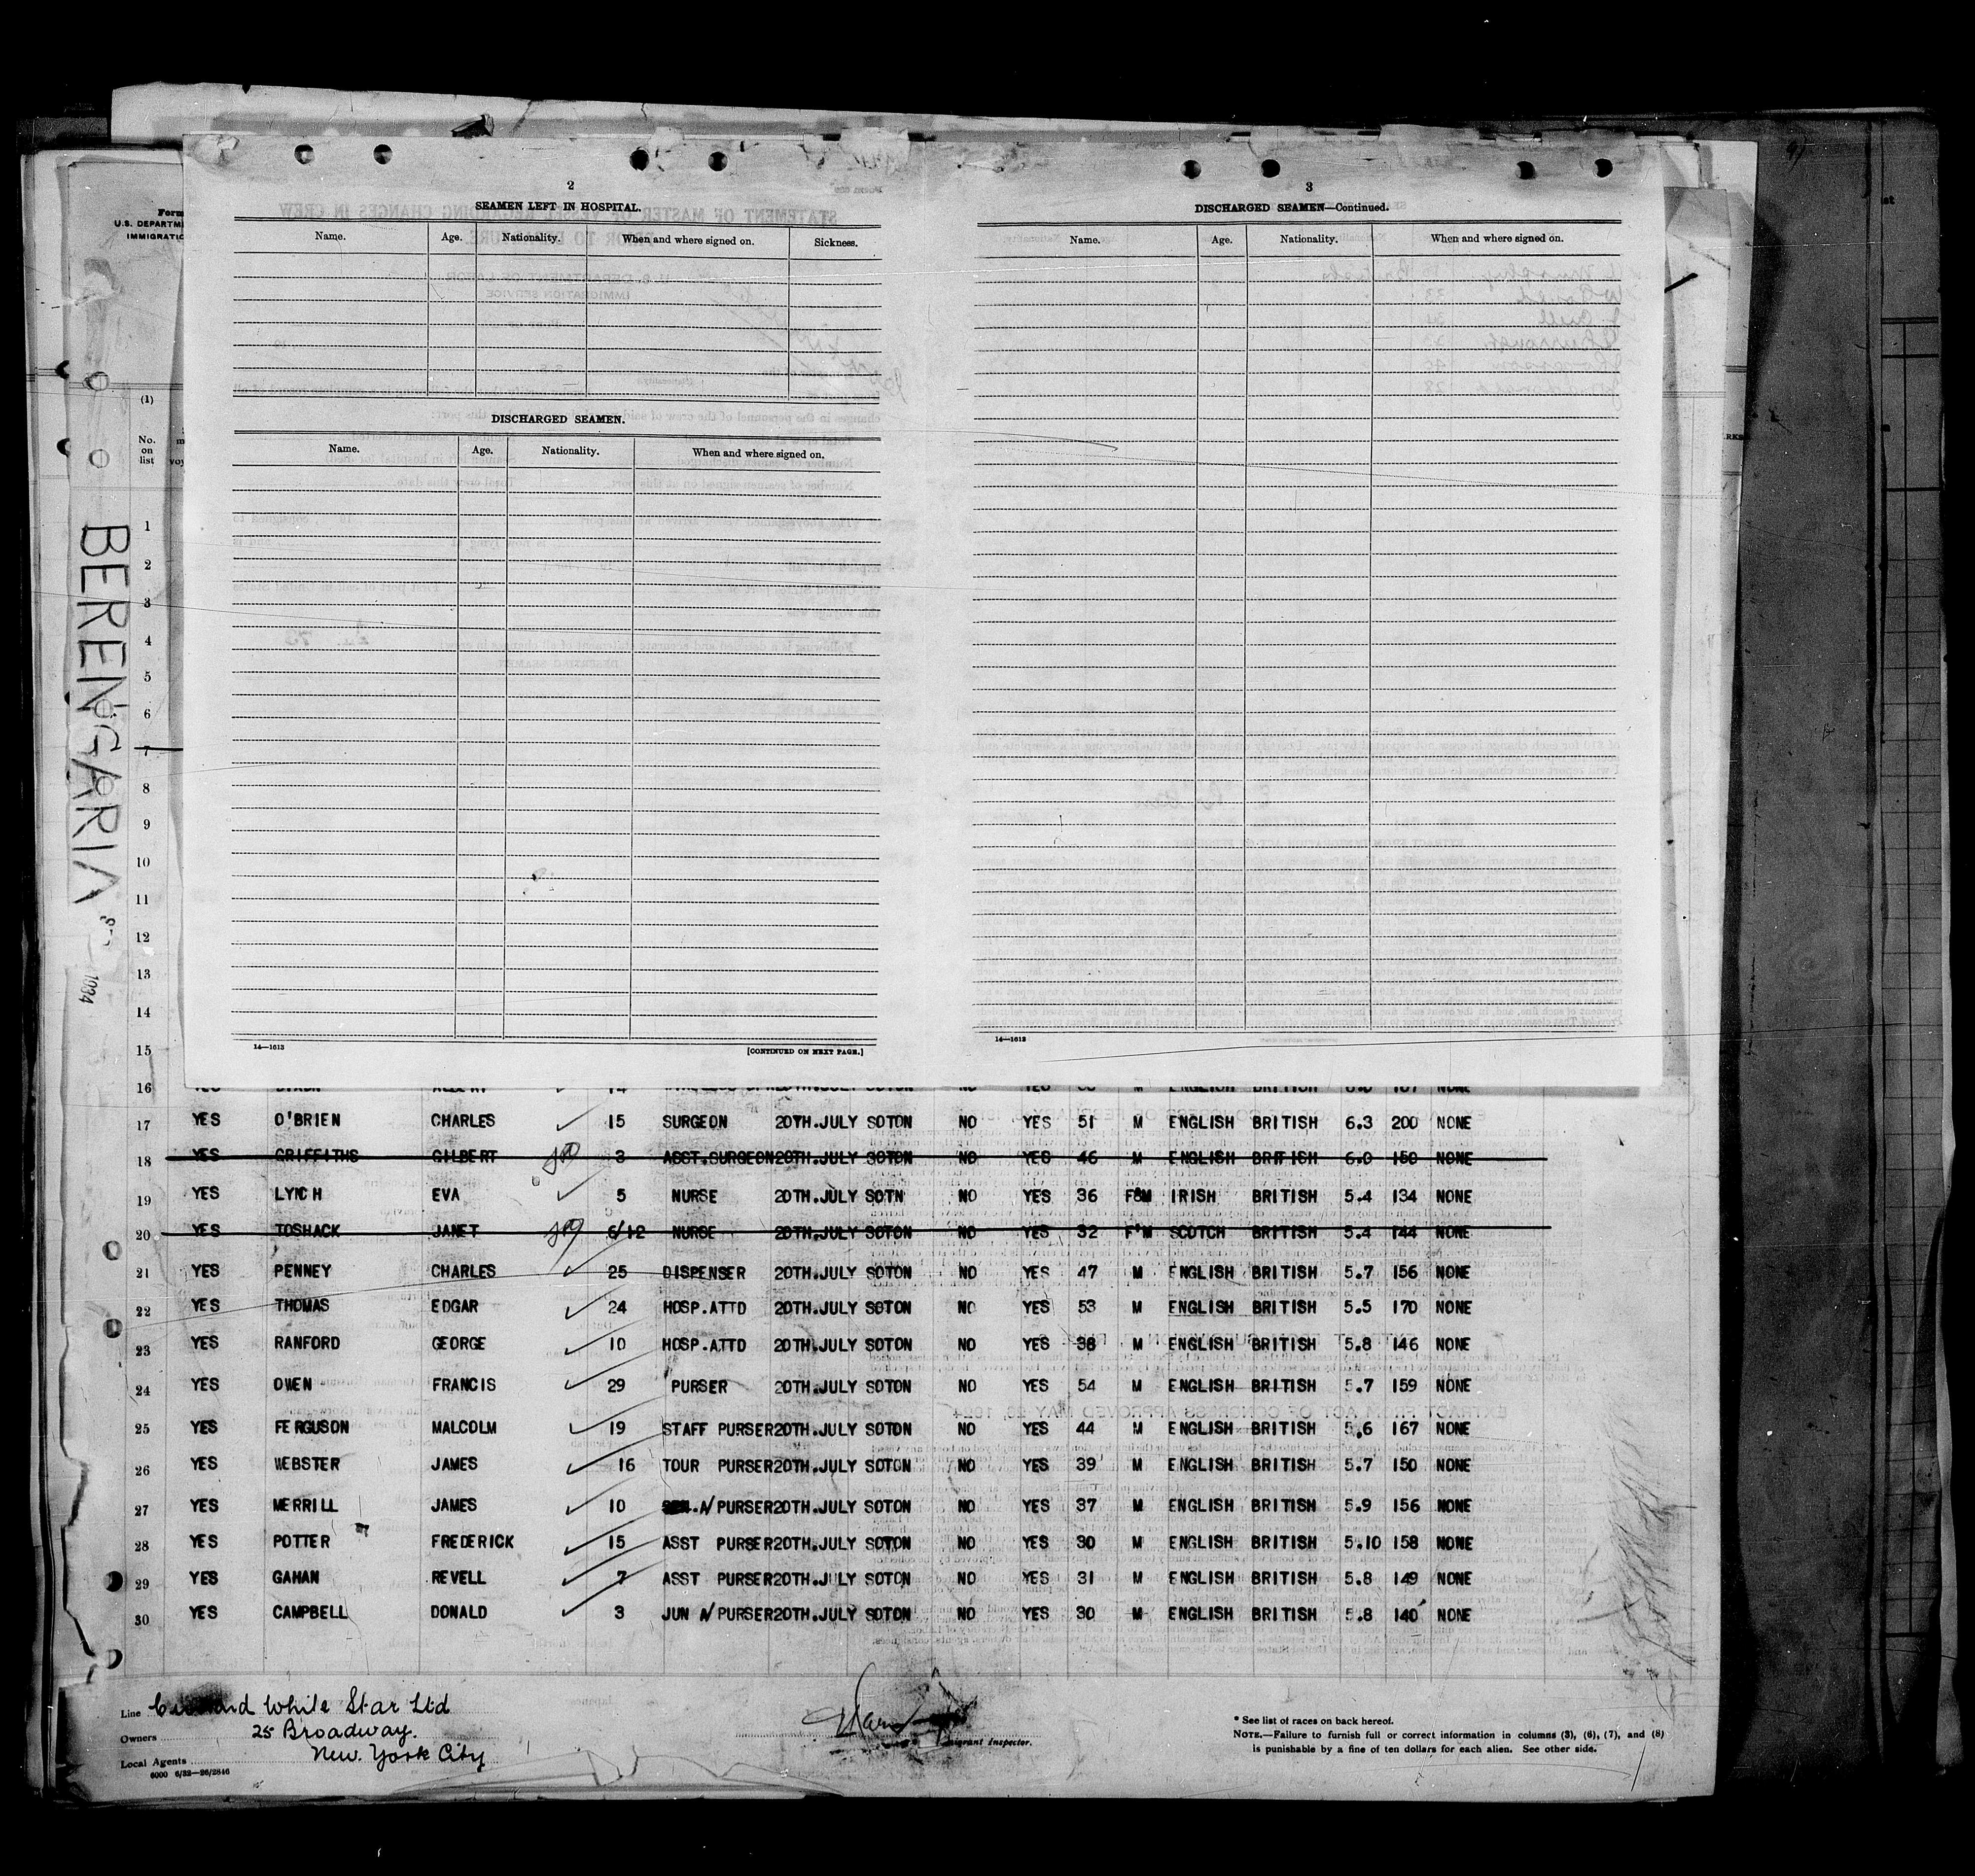 2
SEAMEN LEFT IN HOSPITAL.
Name. Age. Nationality. When and where signed on. Sickness.
DISCHARGED SEAMEN.
Name. Age. Nationality. When and where signed on.
14—1613
[CONTINUED ON NEXT PAGE.]
3
DISCHARGED SEAMEN—Continued.
Name. Age. Nationality. When and where signed on.
14—1613
Form
U.S. DEPARTME
IMMIGRATIO
(1)
No.
on
list
BERENGARIA
1034
1
2
3
4
5
6
7
8
9
10
11
12
13
14
15
16
17 YES O'BRIEN CHARLES 15 SURGEON 20TH.JULY SOTON NO YES 51 M ENGLISH BRITISH 6.3 200 NONE
18 YES GRIFFITHS GILBERT 3 ASST.SURGEON 20TH.JULY SOTON NO YES 46 M ENGLISH BRITISH 6.0 150 NONE
19 YES LYNCH EVA 5 NURSE 20TH.JULY SOTN NO YES 36 F&M IRISH BRITISH 5.4 134 NONE
20 YES TOSHACK JANET 6/12 NURSE 20TH.JULY SOTON NO YES 32 F'M SCOTCH BRITISH 5.4 144 NONE
21 YES PENNEY CHARLES 25 DISPENSER 20TH.JULY SOTON NO YES 47 M ENGLISH BRITISH 5.7 156 NONE
22 YES THOMAS EDGAR 24 HOSP.ATTD 20TH.JULY SOTON NO YES 53 M ENGLISH BRITISH 5.5 170 NONE
23 YES RANFORD GEORGE 10 HOSP.ATTD 20TH.JULY SOTON NO YES 38 M ENGLISH BRITISH 5.8 146 NONE
24 YES OWEN FRANCIS 29 PURSER 20TH.JULY SOTON NO YES 54 M ENGLISH BRITISH 5.7 159 NONE
25 YES FERGUSON MALCOLM 19 STAFF PURSER 20TH.JULY SOTON NO YES 44 M ENGLISH BRITISH 5.6 167 NONE
26 YES WEBSTER JAMES 16 TOUR PURSER 20TH.JULY SOTON NO YES 39 M ENGLISH BRITISH 5.7 150 NONE
27 YES MERRILL JAMES 10 SEN.A/PURSER 20TH.JULY SOTON NO YES 37 M ENGLISH BRITISH 5.9 156 NONE
28 YES POTTER FREDERICK 15 ASST PURSER 20TH.JULY SOTON NO YES 30 M ENGLISH BRITISH 5.10 158 NONE
29 YES GAHAN REVELL 7 ASST PURSER 20TH.JULY SOTON NO YES 31 M ENGLISH BRITISH 5.8 149 NONE
30 YES CAMPBELL DONALD 3 JUN A/PURSER 20TH.JULY SOTON NO YES 30 M ENGLISH BRITISH 5.8 140 NONE
Line Cunard White Star Ltd
Owners 25 Broadway.
Local Agents New York City
6000 6/32—26/2846
Immigrant Inspector.
* See list of races on back hereof.
NOTE.—Failure to furnish full or correct information in columns (3), (6), (7), and (8)
is punishable by a fine of ten dollars for each alien. See other side.